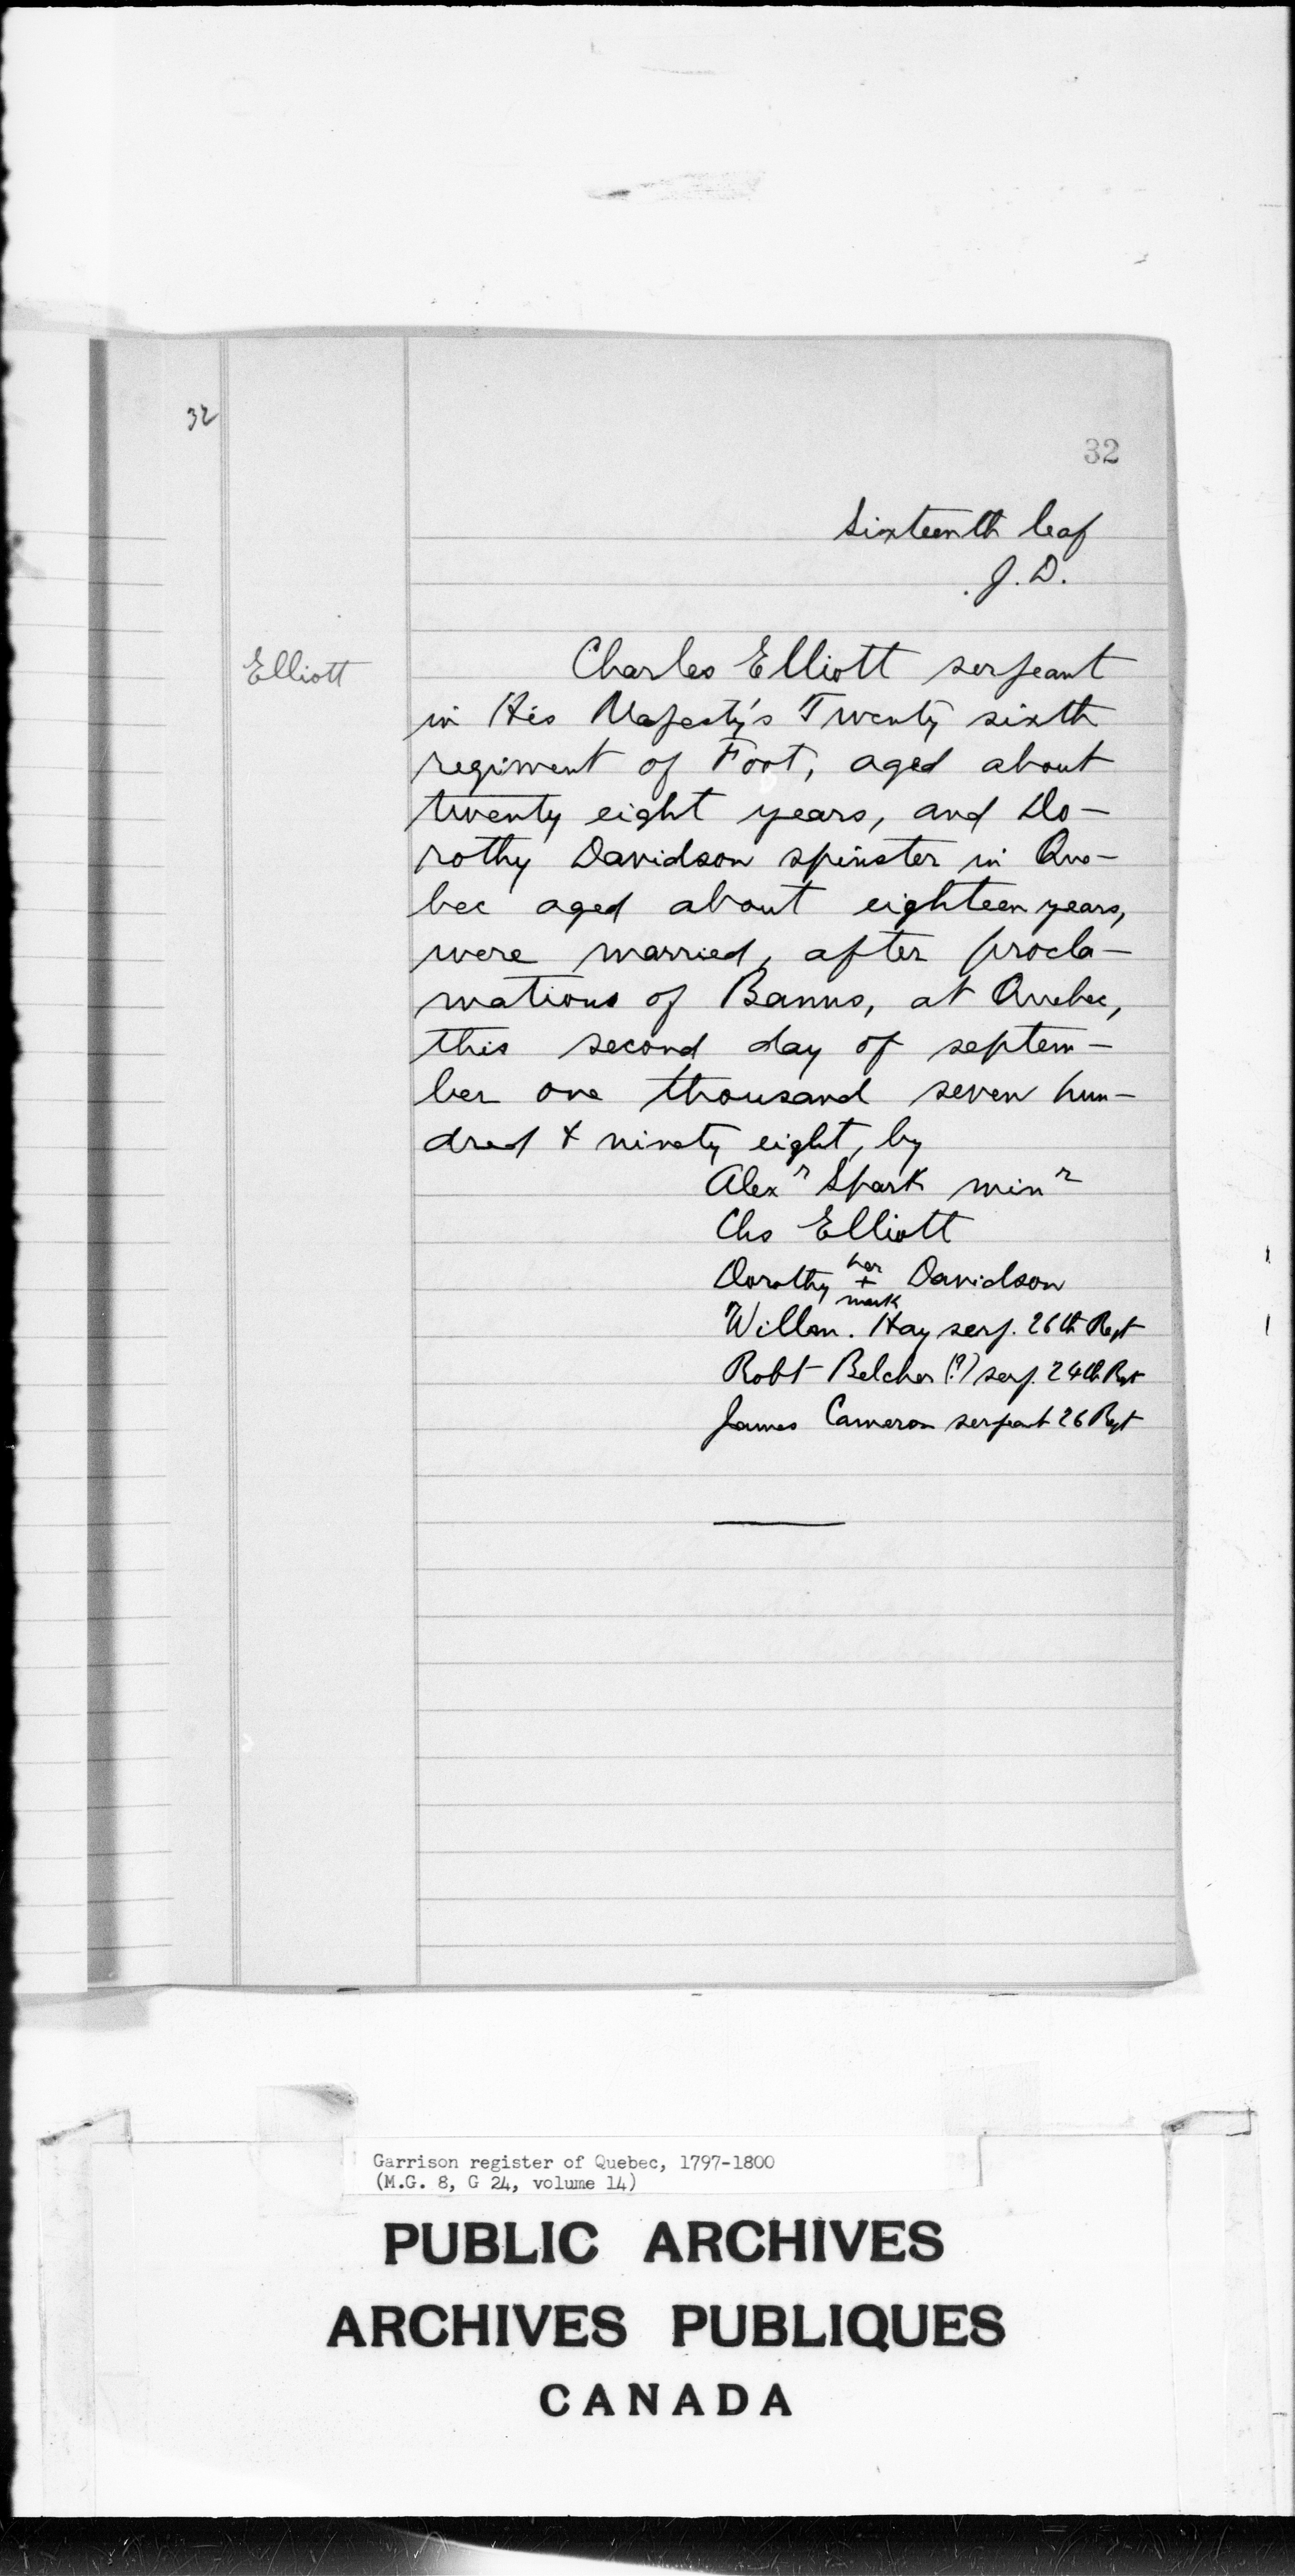 32
32
Sixteenth leaf
J. D.
Elliott
Charles Elliott serjeant
in His Majesty's Twenty sixth
regiment of Foot, aged about
twenty eight years, and Do-
rothy Davidson spinster in Que-
bec aged about eighteen years,
were married, after procla-
mations of Banns, at Quebec,
this second day of septem-
ber one thousand seven hun-
dred & ninety eight, by
Alexr Spark minr
Chs Elliott
Dorothy her + mark Davidson
Willm. Hay serj. 26th Regt
Robt Belcher (?) serj. 24th Rgt
James Cameron serjeant 26 Regt
Garrison register of Quebec, 1797-1800
(M.G. 8, G 24, volume 14)
PUBLIC ARCHIVES
ARCHIVES PUBLIQUES
CANADA